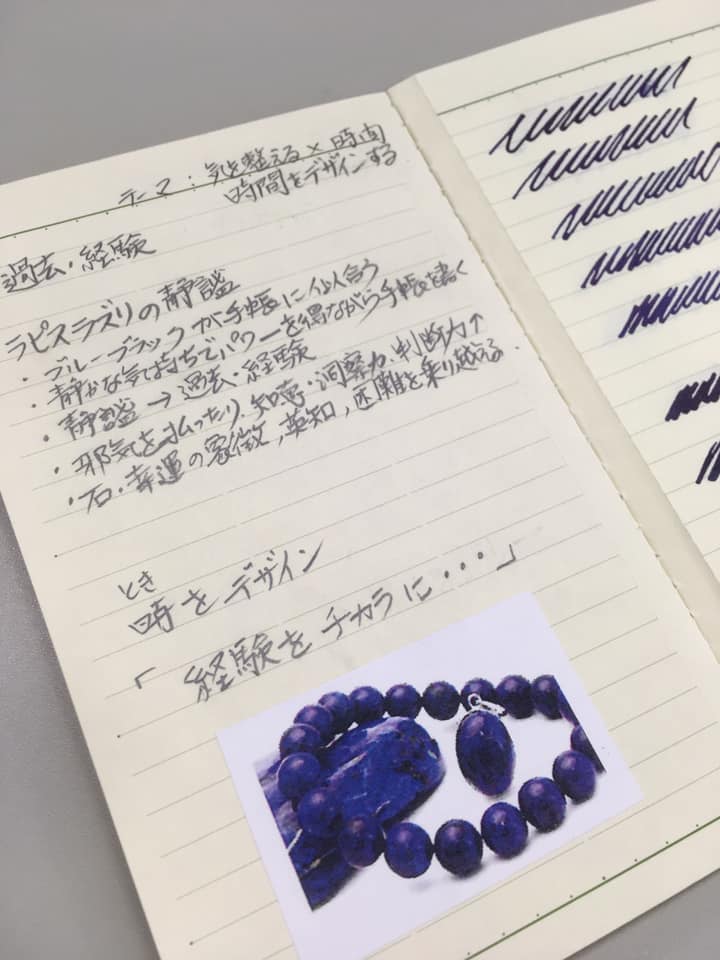 テーマ：気を整える×時間
時間をデザインする
過去・経験
ラピスラズリの静謐
・ブルーブラックが手帳に似合う
・静かな気持ちでパワーを得ながら手帳を書く
・静謐→過去・経験
・邪気を払ったり、知恵・洞察力、判断力↑
・石・幸運の象徴，英知，困難を乗り越える．
とき
時をデザイン
「経験をチカラに・・・」